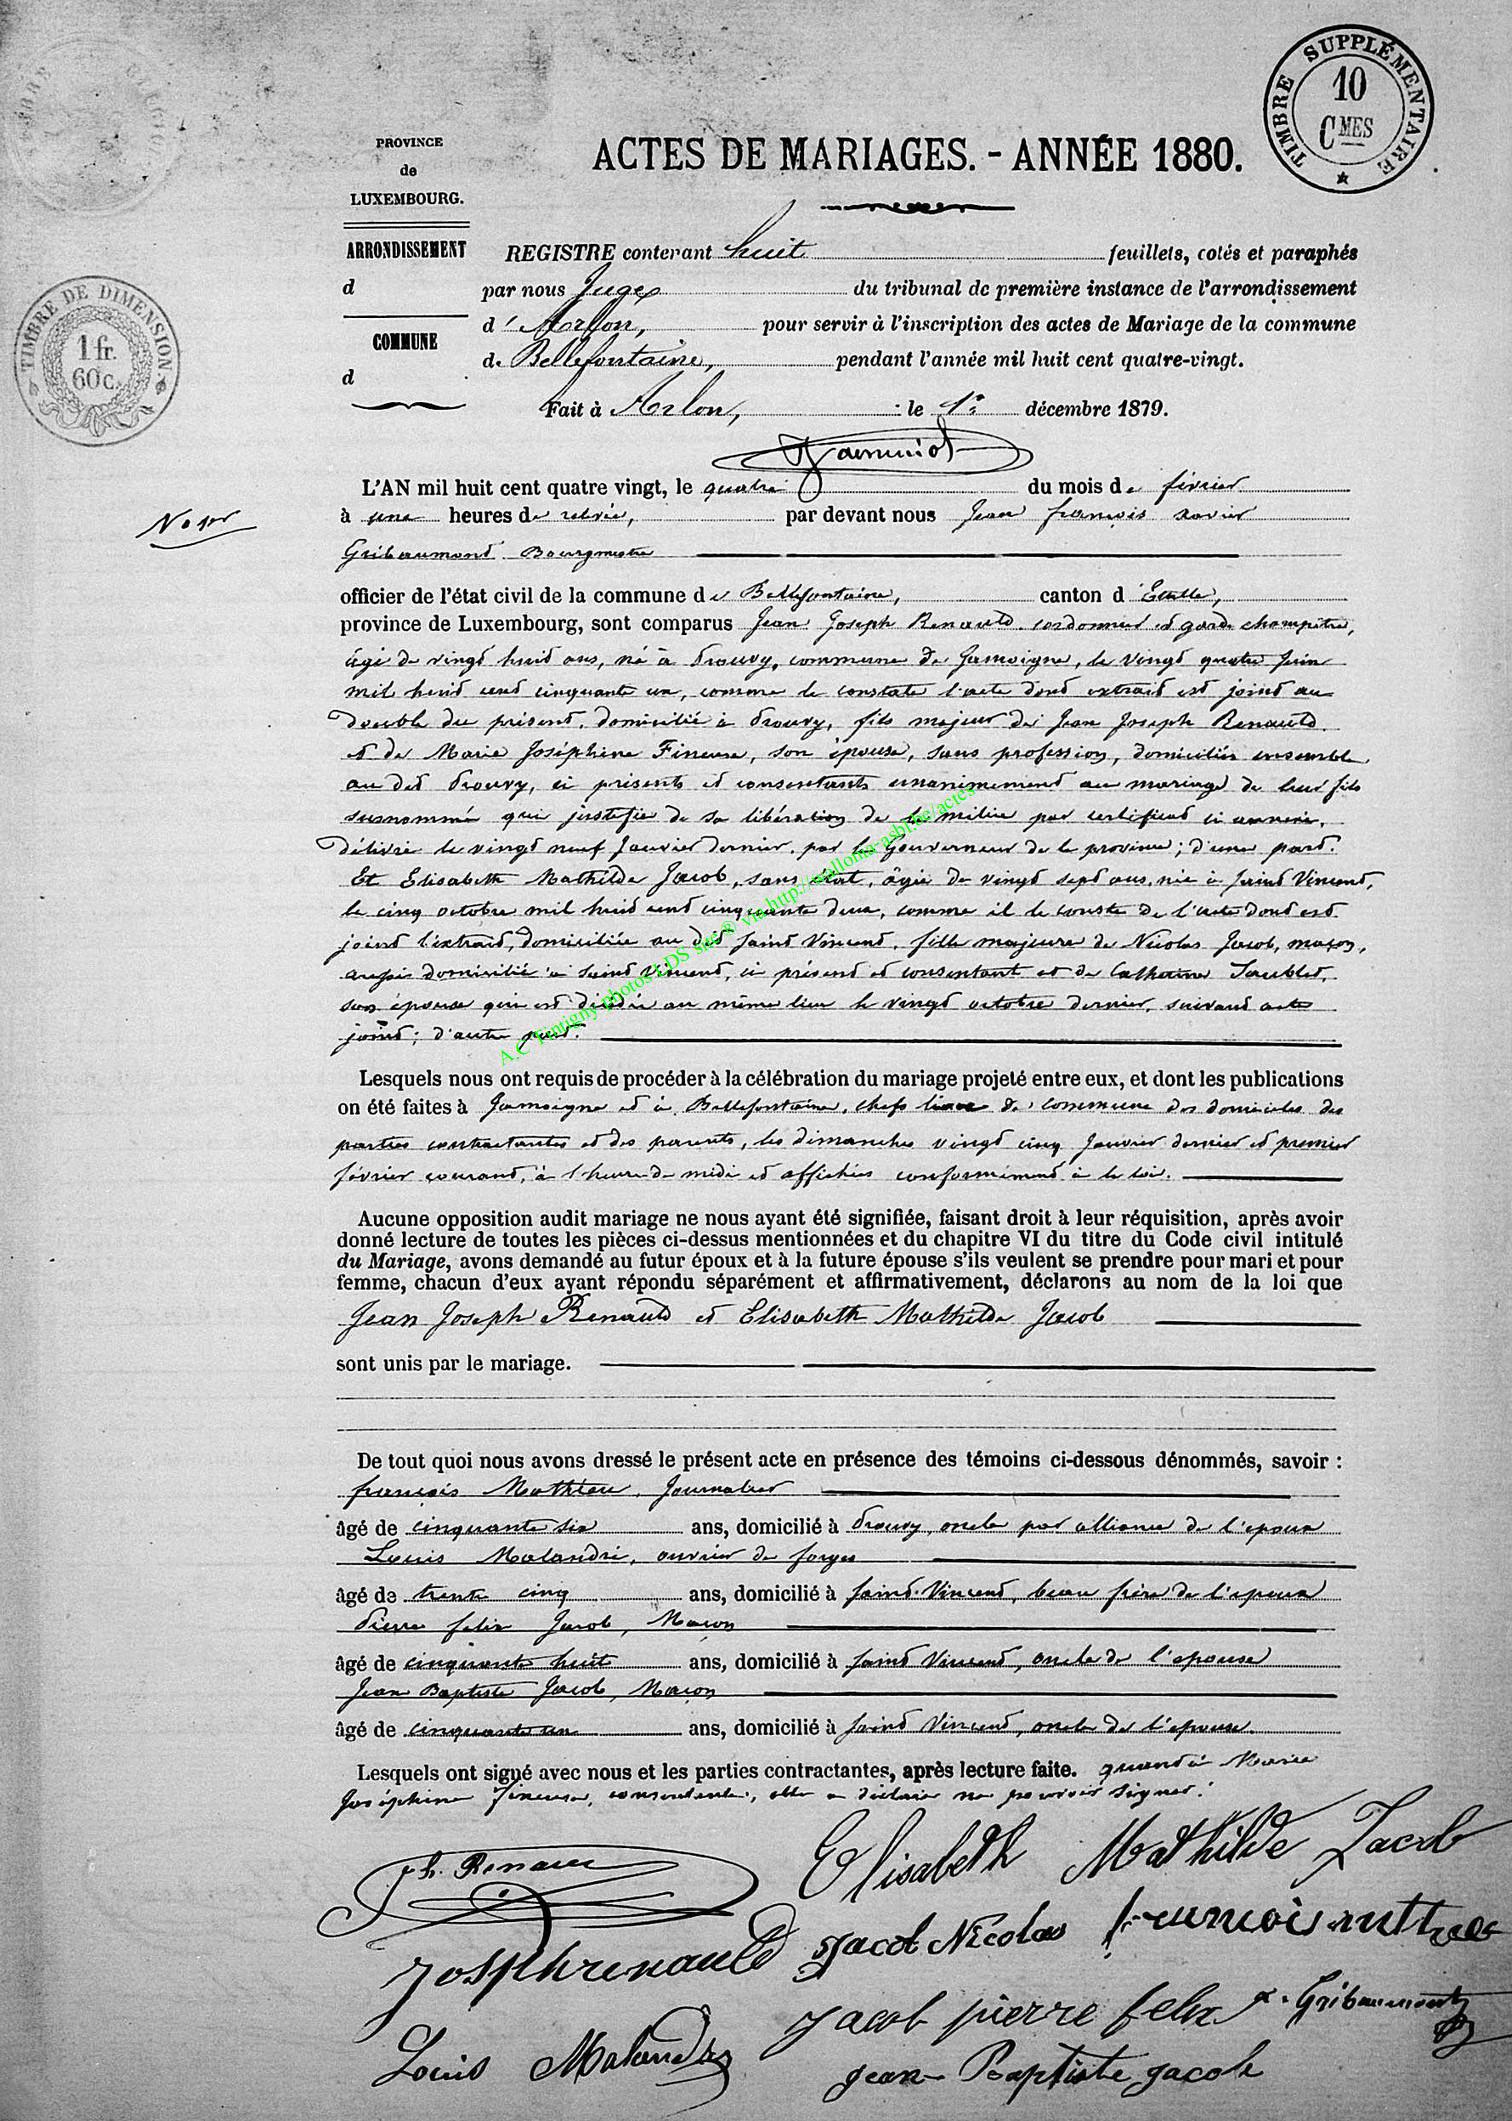 TIMBRE SUPPLÉMENTAIRE
10
CMES
PROVINCE
de
LUXEMBOURG.
ACTES DE MARIAGES. - ANNÉE 1880.
TIMBRE DE DIMENSION
1 fr.
60 c.
ARRONDISSEMENT
d
COMMUNE
d
REGISTRE contenant huit feuillets, cotés et paraphés
par nous Juge du tribunal de première instance de l'arrondissement
d' Arlon, pour servir à l'inscription des actes de Mariage de la commune
de Bellefontaine, pendant l'année mil huit cent quatre-vingt.
Fait à Arlon, le 1er décembre 1879.
No 1er
L'AN mil huit cent quatre vingt, le quatre du mois de février
à une heures de relevée, par devant nous Jean françois xavier
Gribaumont Bourgmestre
officier de l'état civil de la commune de Bellefontaine, canton d'Etalle,
province de Luxembourg, sont comparus Jean Joseph Renauld cordonnier et garde champêtre,
âgé de vingt huit ans, né à Prouvy, commune de Jamoigne, le vingt quatre Juin
mil huit cent cinquante un, comme le constate l'acte dont extrait est joint au
double du présent, domicilié à Prouvy, fils majeur de Jean Joseph Renauld
et de Marie Joséphine Fineuse, son épouse, sans profession, domiciliés ensemble
au dit Prouvy, ci présents et consentants unanimement au mariage de leur fils
susnommé qui justifie de sa libération de la milice par certificat ci annexé,
délivré le vingt neuf Janvier dernier, par le Gouverneur de la province; d'une part.
Et Elisabeth Mathilde Jacob, sans état, âgée de vingt sept ans, née à Saint Vincent,
le cinq octobre mil huit cent cinquante deux, comme il le conste de l'acte dont est
joint l'extrait, domiciliée au dit Saint Vincent, fille majeure de Nicolas Jacob, maçon,
aussi domicilié à Saint Vincent, ci présent et consentant et de Catherine
son épouse qui est décédée au même lieu le vingt octobre dernier, suivant acte
joint; d'autre part.
A.C Tintigny photos LDS site® via http://wallonia-asbl.be/actes
Lesquels nous ont requis de procéder à la célébration du mariage projeté entre eux, et dont les publications
on été faites à Jamoigne et à Bellefontaine, chefs lieux de commune des domiciles des
parties contractantes et des parents, les dimanches vingt cinq Janvier dernier et premier
février courant, à l'heure de midi et affichées conformément à la loi.
Aucune opposition audit mariage ne nous ayant été signifiée, faisant droit à leur réquisition, après avoir
donné lecture de toutes les pièces ci-dessus mentionnées et du chapitre VI du titre du Code civil intitulé
du Mariage, avons demandé au futur époux et à la future épouse s'ils veulent se prendre pour mari et pour
femme, chacun d'eux ayant répondu séparément et affirmativement, déclarons au nom de la loi que
Jean Joseph Renauld et Elisabeth Mathilde Jacob
sont unis par le mariage.
De tout quoi nous avons dressé le présent acte en présence des témoins ci-dessous dénommés, savoir :
françois Mathieu, Journalier
âgé de cinquante six ans, domicilié à Prouvy, oncle par alliance de l'époux
Louis Malandré, ouvrier de forges
âgé de trente cinq ans, domicilié à Saint Vincent, beau frère de l'époux
Pierre felix Jacob, Maçon
âgé de cinquante huit ans, domicilié à Saint Vincent, oncle de l'épouse
Jean Baptiste Jacob, Maçon
âgé de cinquante un ans, domicilié à Saint Vincent, oncle de l'épouse.
Lesquels ont signé avec nous et les parties contractantes, après lecture faite. quant à Marie
Joséphine Fineuse, consentente, elle a déclaré ne pouvoir signer.
Elisabeth Mathilde Jacob
Josphrenauld Jacob Nicolas
Jacob pierre felix Gribaumont
Louis Malandré
Jean Baptiste Jacob